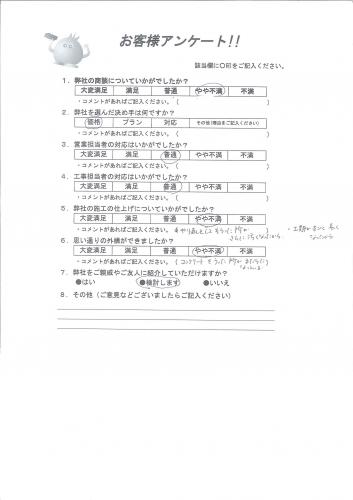 お客様アンケート!!
該当欄に〇印をご記入ください。
1. 弊社の商談についていかがでしたか?
大変満足 満足 普通 やや不満 不満
・コメントがあればご記入ください。(
2. 弊社を選んだ決め手は何ですか?
価格 プラン 対応 その他(理由をご記入ください)
・コメントがあればご記入ください。(
3. 営業担当者の対応はいかがでしたか?
大変満足 満足 普通 やや不満 不満
・コメントがあればご記入ください。(
4. 工事担当者の対応はいかがでしたか?
大変満足 満足 普通 やや不満 不満
・コメントがあればご記入ください。(
5. 弊社の施工の仕上げについていかがでしたか?
大変満足 満足 普通 やや不満 不満
・コメントがあればご記入ください。(
6. 思い通りの外構ができましたか?
大変満足 満足 普通 やや不満 不満
・コメントがあればご記入ください。(コンクリート
7. 弊社をご親戚やご友人に紹介していただけますか?
●はい ●検討します ●いいえ
8. その他(ご意見などございましたらご記入ください)